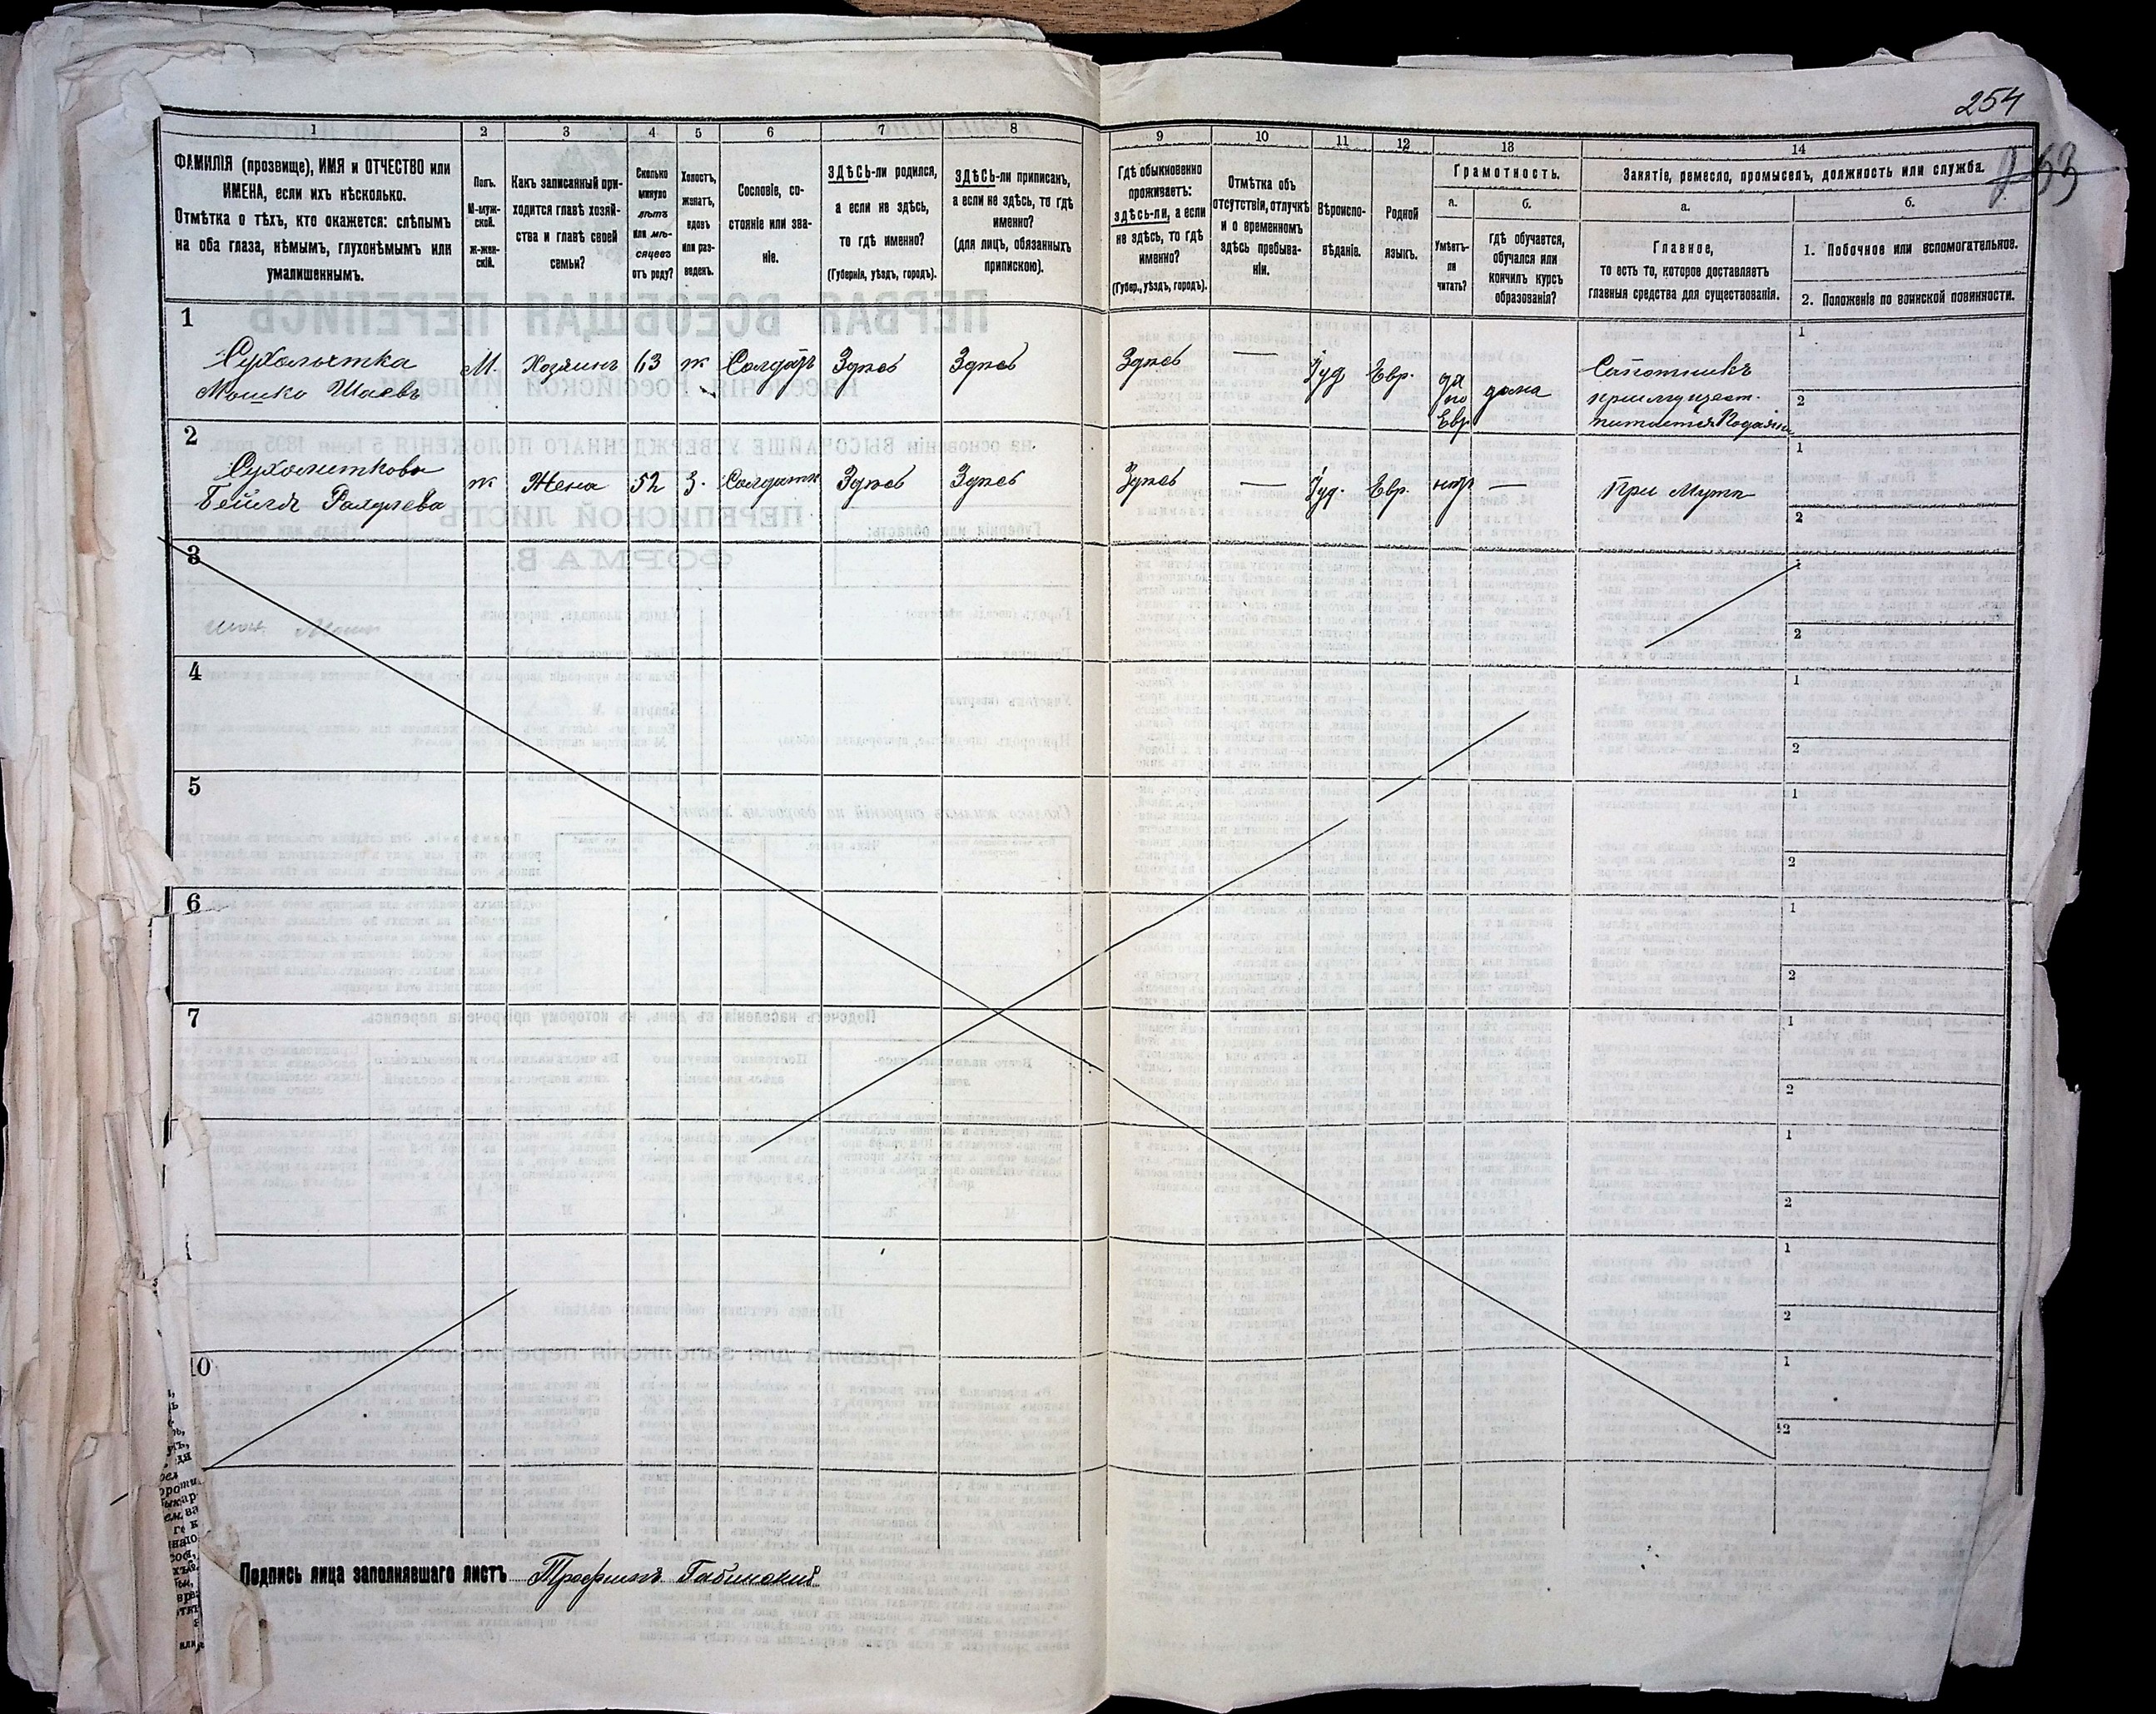 254
1 2 3 4 5 6 7 8 9 10 11 12 13 14
ФАМИЛІЯ (прозвище), ИМЯ и ОТЧЕСТВО или
ИМЕНА, если ихъ нѣсколько.
Отмѣтка о тѣхъ, кто окажется: слѣпымъ
на оба глаза, нѣмымъ, глухонѣмымъ или
умалишеннымъ.
Полъ.
М-муж-
ской.
ж-жен-
скій.
Какъ записанный при-
ходится главѣ хозяй-
ства и главѣ своей
семьи?
Сколько
минуло
лѣтъ
или мѣ-
сяцевъ
отъ роду?
Холостъ,
женатъ,
вдовъ
или раз-
веденъ.
Сословіе, со-
стояніе или зва-
ніе.
ЗДѢСЬ-ли родился,
а если не здѣсь,
то гдѣ именно?
(Губернія, уѣздъ, городъ).
ЗДѢСЬ-ли приписанъ,
а если не здѣсь, то гдѣ
именно?
(для лицъ, обязанныхъ
припискою).
Гдѣ обыкновенно
проживаетъ:
здѣсь-ли, а если
не здѣсь, то гдѣ
именно?
(Губер., уѣздъ, городъ).
Отмѣтка объ
отсутствіи, отлучкѣ
и о временномъ
здѣсь пребыва-
ніи.
Вѣроиспо-
вѣданіе.
Родной
языкъ.
Грамотность.
а.
Умѣетъ-
ли
читать?
б.
гдѣ обучается,
обучался или
кончилъ курсъ
образованія?
Занятіе, ремесло, промыселъ, должность или служба.
а.
Главное,
то есть то, которое доставляетъ
главныя средства для существованія.
б.
1. Побочное или вспомогательное.
2. Положеніе по воинской повинности.
1
Мошко Шаевъ
М. Хозяинъ 63 ж Солдатъ Здѣсь Здѣсь Здѣсь — Іуд Евр. да по Евр. дома
Сапожникъ
1
2
2
Сухолиткова
Бейля
ж Жена 52 З. Солдатк Здѣсь Здѣсь Здѣсь — Іуд. Евр. нѣтъ — При Мужѣ
1
2
3
1
2
4
1
2
5
1
2
6
1
2
7
1
2
1
2
1
2
10
1
2
Подпись лица заполнявшаго листъ Трофимъ Габинскій